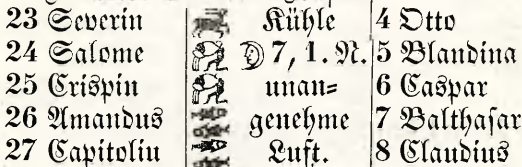 23 Severin Kühle 4 Otto
24 Salome 7, 1. N. 5 Blandina
25 Crispin unan= 6 Caspar
26 Amandus genehme 7 Balthasar
27 Capitolin Luft. 8 Claudius